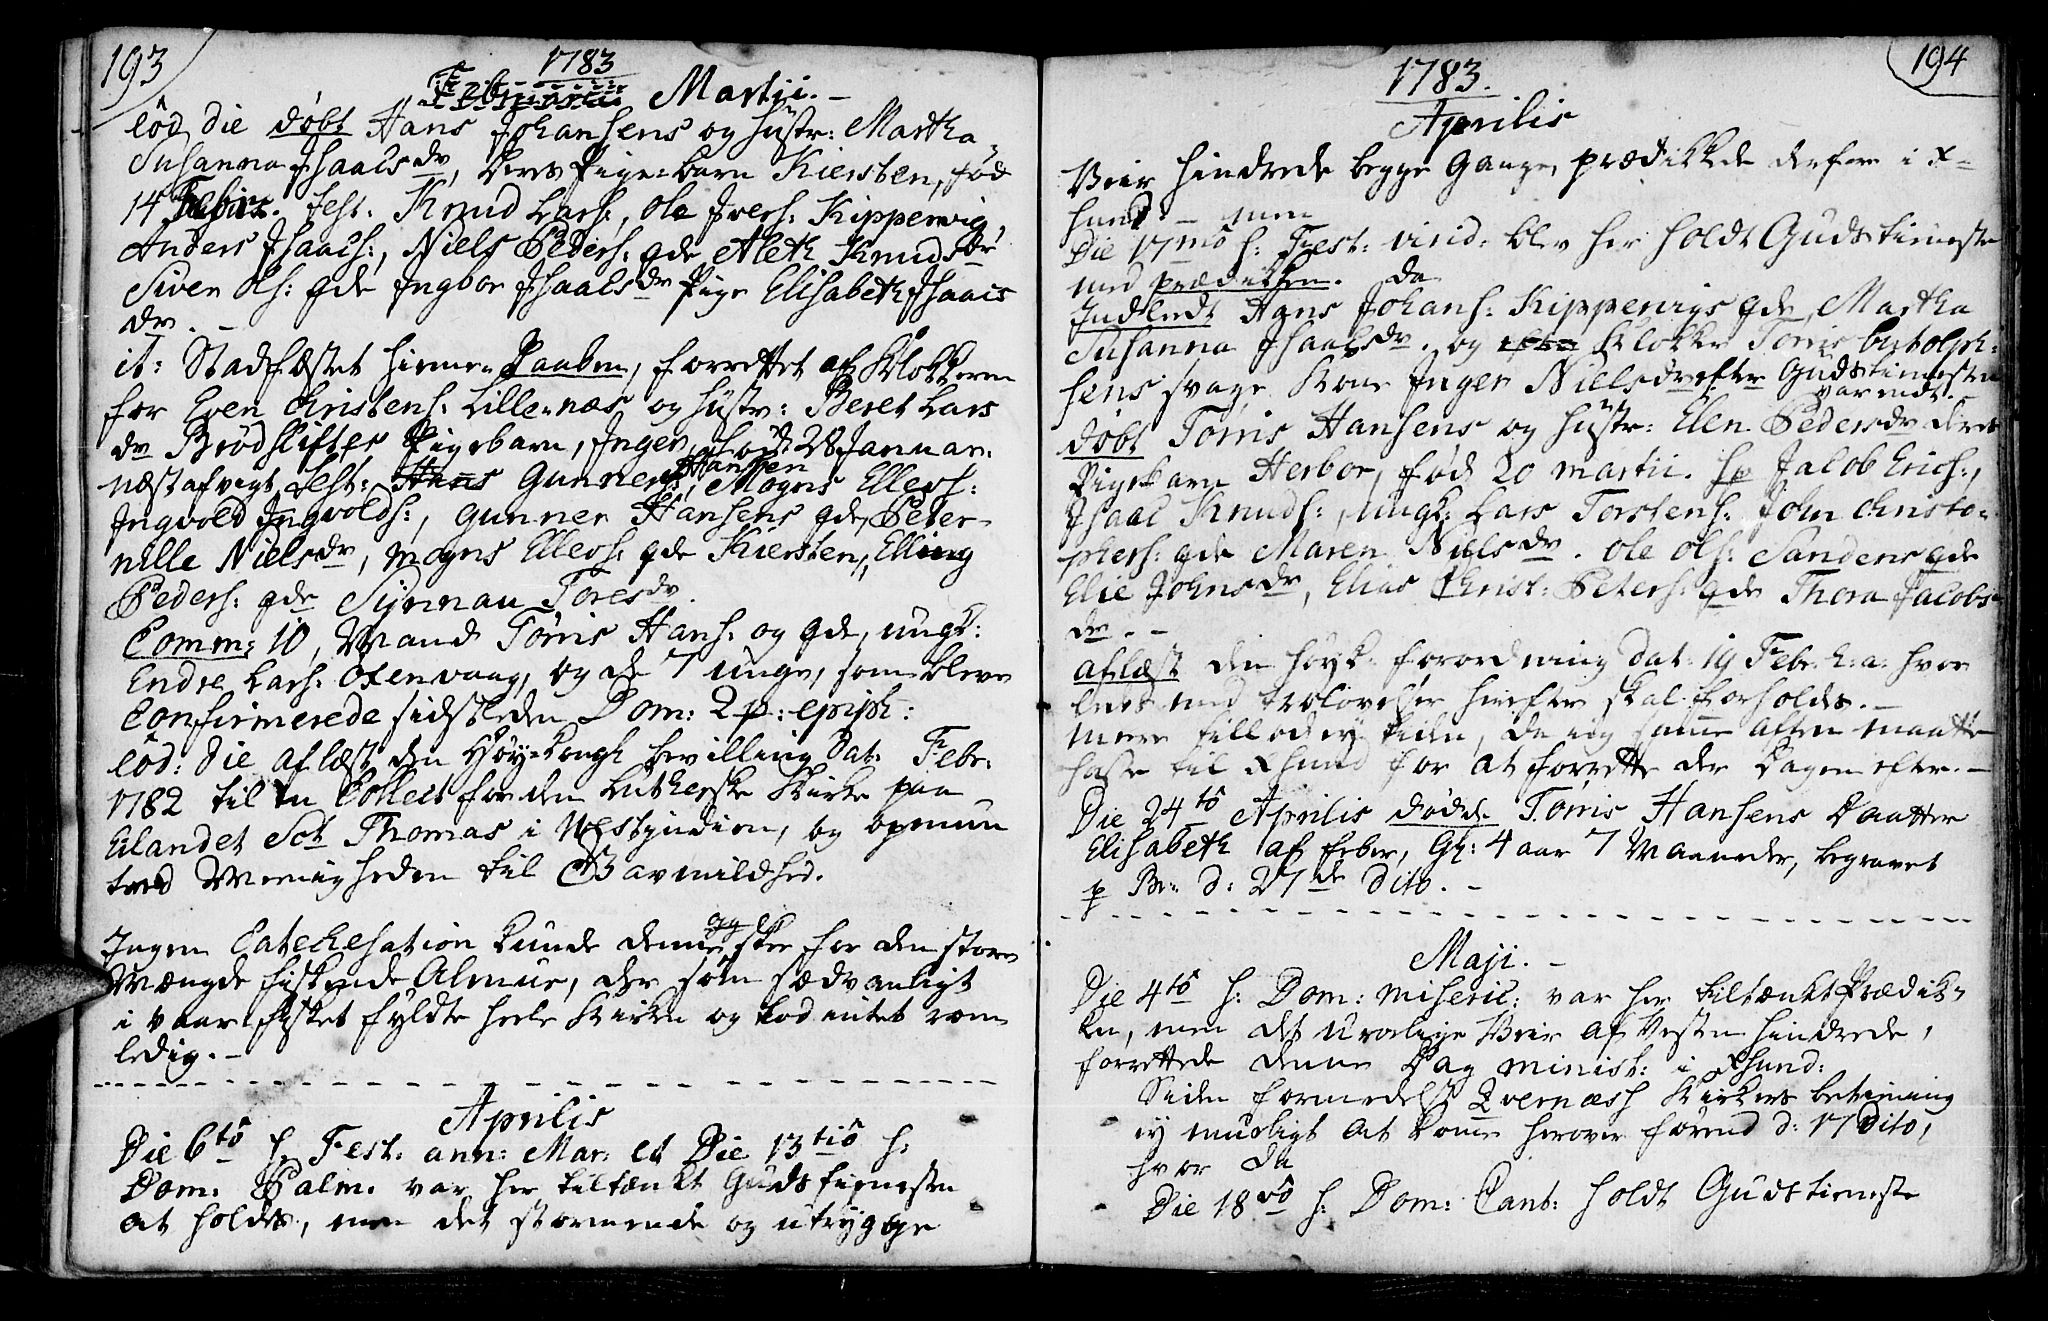 193
1783
Februarii Martii. -
eôd die døbt Hans Johansens og hustr: Martha
Susanna Isaals dr, deres Pige-barn Kiersten, fød
14 Febr. test. Knud Lars:, Ole Ivers: Kippervig,
Anders Isaachs:, Niels Peders: qde Aleth Knuds dr
Siver Ols: qde Ingbor Isaals dr Pige Elisabeth Isaacs
dr. -
it: Stadfæstet hiemme-Daaben, forrettet af Klokkeren
for Even Christens: Lille-næs og hustr: Beret Lars
dr Brødskiftes Pigebarn, Inger, fød 28 Januar.
næst afvigt. test: Hans Gunner Hansen, Mogns Ellers:
Ingvold Ingvolds:, Gunner Hansens qde Peter-
nille Niels dr, Mogns Ellers: qde Kiersten, Elling
Peders: qde Synnau Tores dr.
Comm: 10, Mand Tørris Hans: og qde, ungk:
Endre Lars: Oxenvaag, og de 7 unge, som bleve
Confirmerede sidstleden Dom: 2 p: epiph:
eôd: die aflæst den Høy-Kongl bevilling dat: Febr:
1782 til en Collect for den Lutherske Kirke paa
Eilandet Sct Thomas i Westindien, og opmun
tred Menigheden til Gavmildhed.
Ingen Catechesation kunde denne og skee for den store
Mængde fiskende Almue, der som sædvanligt
i vaar-fisket fyldte heele Kirken og lod intet rom
ledig. -
Aprilis
Die 6tô h: Fest: ann: Mar: et Die 13tiô h:
Dom: Palm: var her tiltænkt Guds tieneste
at holdes, men det stormende og utrygge
194
1783.
Aprilis
Veir hindrede begge Gange, prædikkede derfor i X-
sund. - men
Die 17mô h: Fest: virid: blev her holdt Guds tieneste
med prædikken. da
Indledt Hans Johans: Kippervigs qde, Martha
Susanna Isaals dr. og Klokker Tørris Butolph-
sens svage Kone Inger Niels dr efter Guds tienesten
var endt. -
døbt Tørris Hansens og hustr: Elen Peders dr deres
Pigebarn Herbor, fød 20 martii. sp Jacob Erich:,
Isaac Knuds:, ungk: Lars Torstens: John Christo-
phers: qde Maren Niels dr. Ole Ols: Sandens qde
Elie Johns dr, Elias Christ: Peters: qde Thora Jacobs
dr. -
aflæst den høyk: forordning dat: 19 Febr. h: a: hvor
ledes med trolovelser herefter skal forholdes. -
meere tillod ey tiden, da ieg samme aften maatte
haste til Xsund for at forrette der Dagen efter. -
Die 24tô Aprilis døde Tørris Hansens Daatter
Elisabeth af feber, Gl: 4 aar 7 Maaneder, begravet
p Br: d: 27de dito. -
Maji. -
Die 4tô h: Dom: miseric: var her tiltænkt Prædik-
ken, men det urolige Veir af Vesten hindrede,
forrettede denne Dag minist: i Xsund:
Siden formedelst Qvernæsh Kirkers betiening
ey mueligt at komme herover førend d: 17 dito,
hvor da
Die 18vô h: Dom: Cant: holdt Guds tieneste